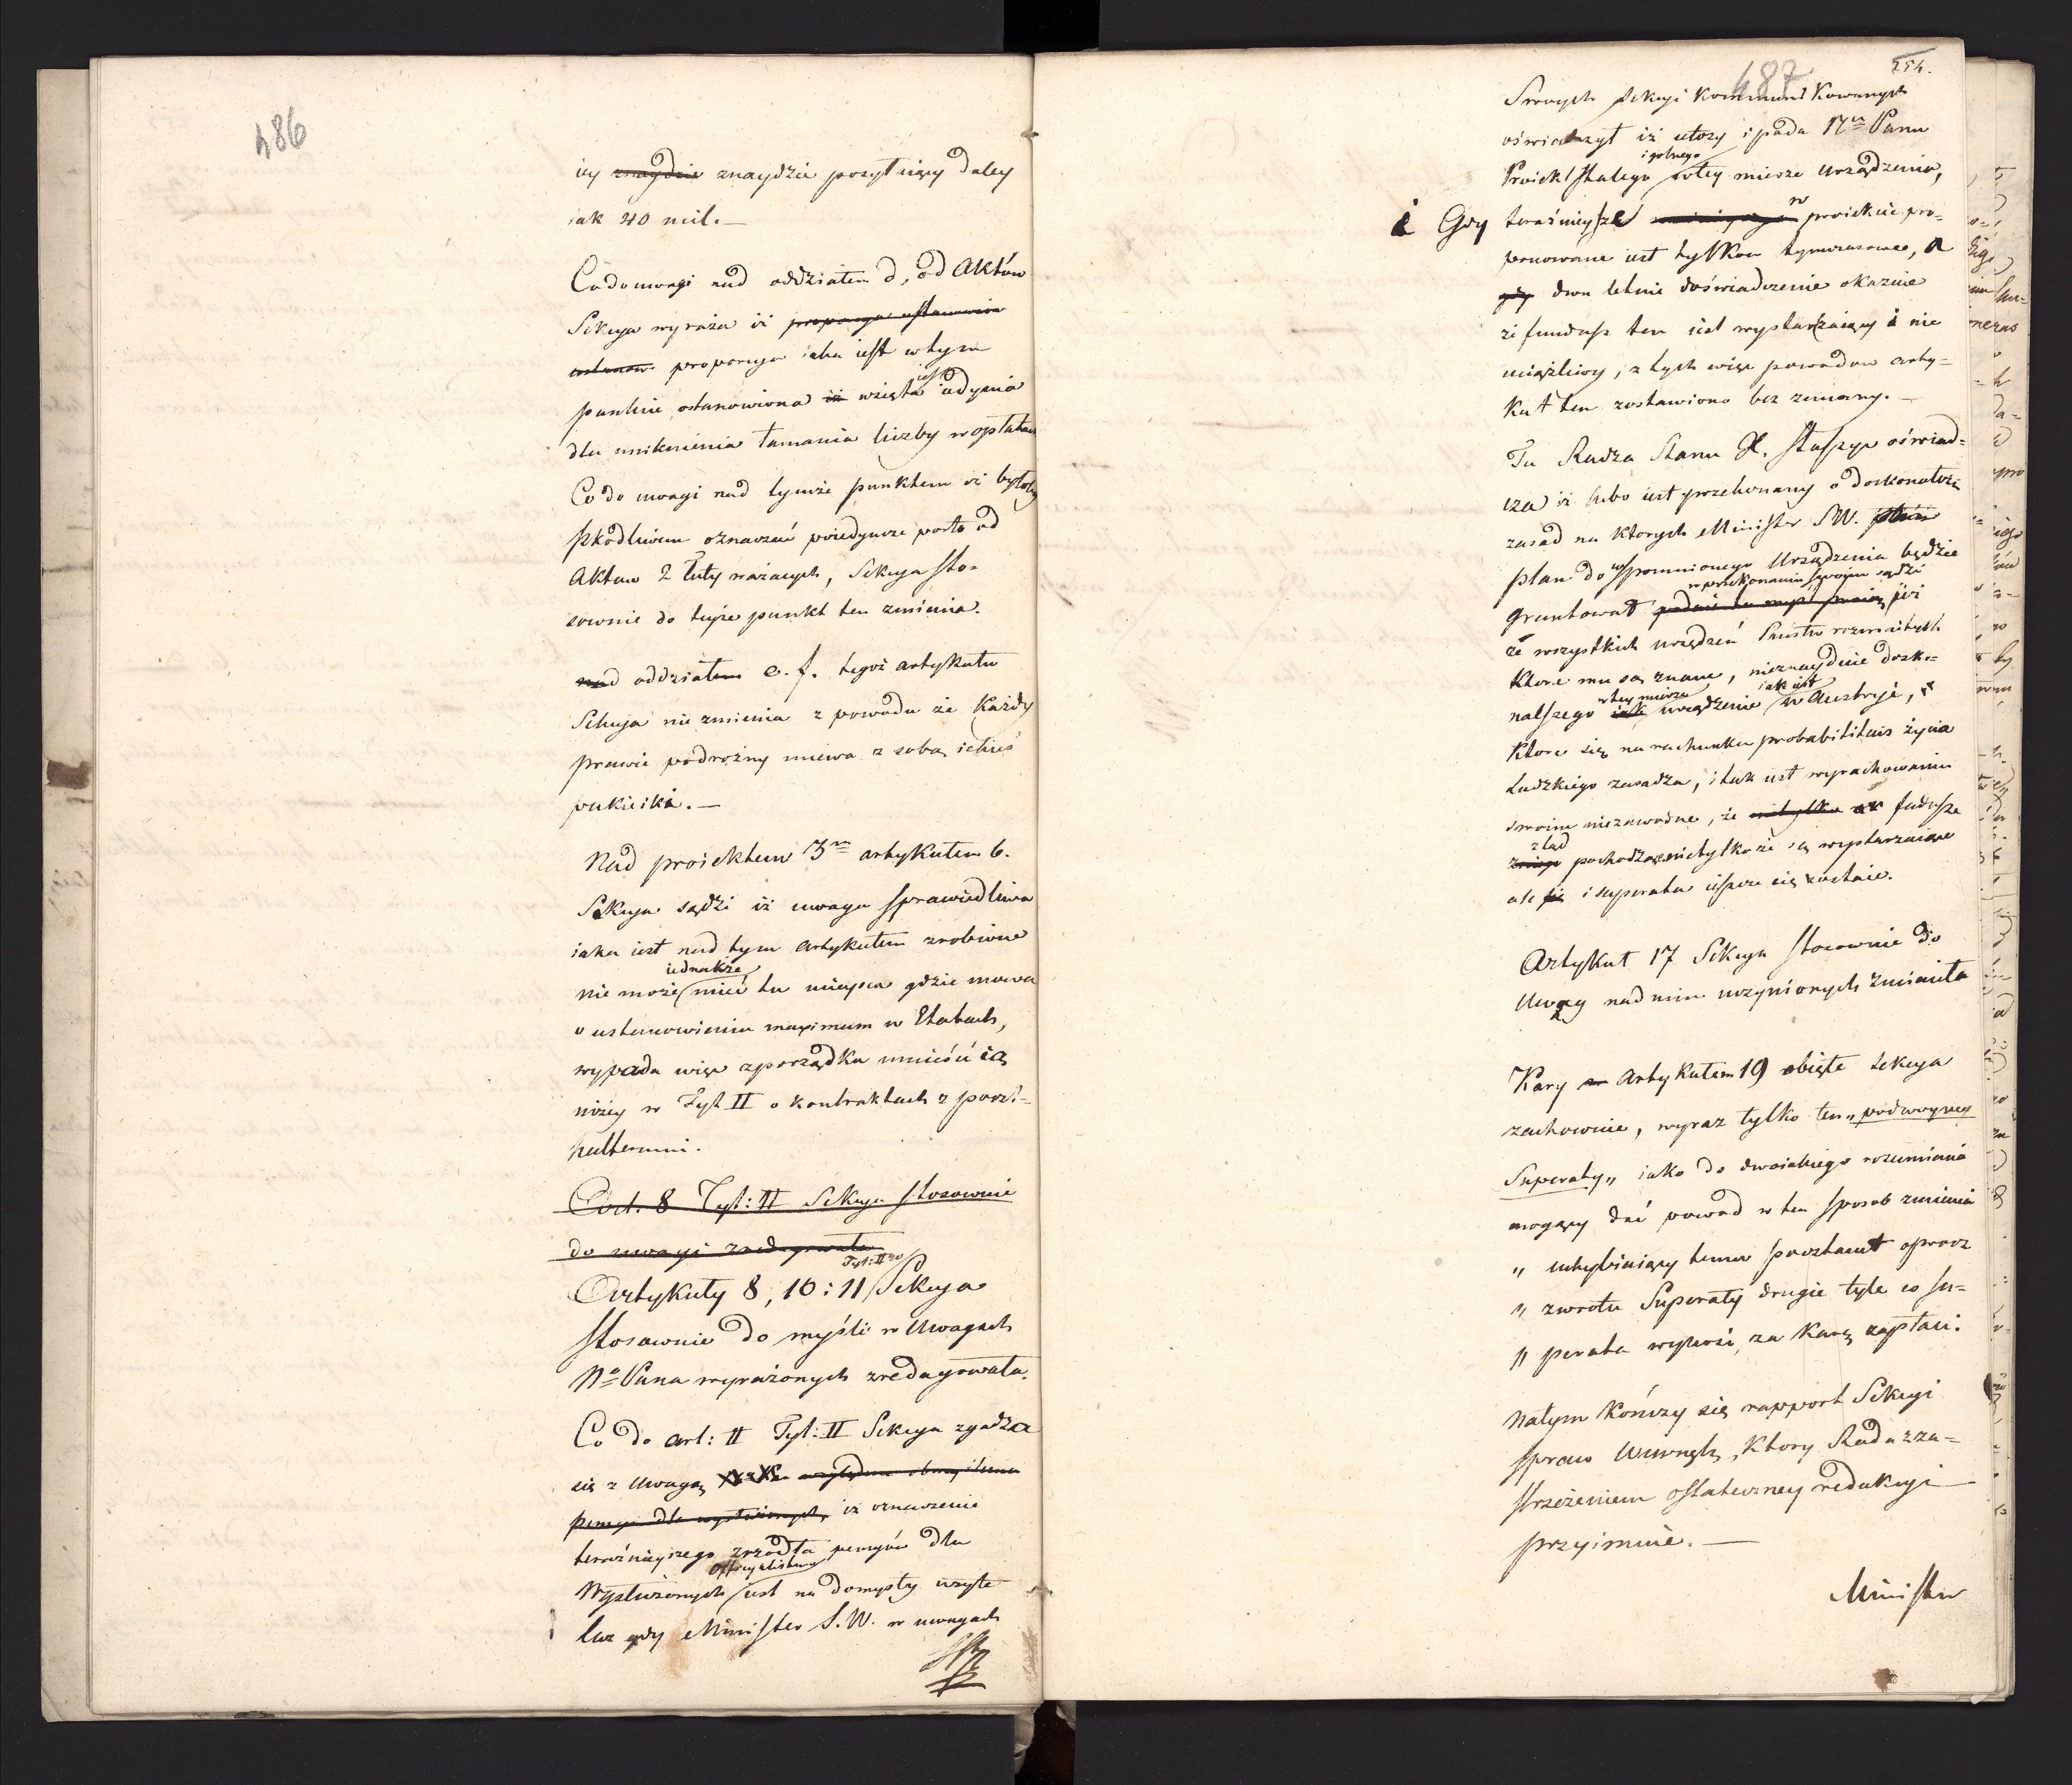 486
iey znaydzie znaydzie pocztuiący daley
iak 40 mil. —
Co do uwagi nad oddziałem d, od Aktów
Sekcya wyraża iż propozycya ustanowiona
proporcya iaka iest w tym
punkcie ostanowiona iż wzięta iest iedynie
dla uniknienia łamania liczby w opłatach
Co do uwagi nad tymże punktem iż byłoby
szkodliwem oznaczać poiedyncze porto od
Aktow 2 Łuty ważących, Sekcya sto-
sownie do teyże punkt ten zmienia.
nad oddziałem e. f. tegoż artykułu
Sekcya nie zmienia z powodu że każdy
prawie podrożny miewa z sobą iakieś
pakieciki. —
Nad proiektem 3m artykułem 6.
Sekcya sądzi iż uwaga sprawiedliwa
iaka iest nad tym artykułem zrobiona
iednakże
nie może mieć tu mieysca gdzie mowa
o ustanowieniu maximum w Etatach,
wypada więc z porządku umieścić ią
niżey w Tyt II o kontraktach z poczt-
halterami.
Art. 8 Tyt: II Sekcya stosownie
do uwagi zredagowała
Tyt: II go
Artykuły 8, 10 i 11 Sekcya
stosownie do myśli w Uwagach
No Pana wyrażonych zredagowała.
Co do art: 11 Tyt: II Sekcya zgadza
się z Uwagą względem obmyślenia
pensyi dla wysłużonych, iż oznaczenie
teraźnieyszego źrzodła pensyów dla
Officyalistow
Wysłużonych iest na domysły wzięte
lecz gdy Minister S.W. w uwagach
487
254.
Swoych Sekcyi kommunikowanych
oświadczył iż ułoży i poda No Panu
i zupełnego
Proiekt stałego w tey mierze urządzenia,
i Gdy teraźnieysze w proiekcie pro-
ponowane iest tylko tymczasowe, a
gdy dwu letnie doświadczenie okazuie
że fundusz ten iest wystarczaiący i nie
uciążliwy, z tych więc powodow arty-
kuł ten zostawiono bez zmiany. —
Tu Radca Stanu X. Staszyc oświad-
cza iż lubo iest przekonany o doskonałości
zasad na ktorych Minister S.W. plan
plan do wspomnionego Urządzenia będzie
w przekonaniu swoim sądzi
gruntował iż
ze wszystkich urządzeń Państw rozmaitych
ktore mu są znane, nieznayduie dosko-
w tey mierze iak iest
nalszego iak urządzenie w Austryi,
ktore się na rachunku probabilitatis życia
Ludzkiego zasadza, i tak iest wyrachowaniem
swoim niezawodne, że nietylko fundusze
ztąd
pochodzące nietylko że są wystarczaiące
ale się i superata ieszcze się zostaie.
Artykuł 17 Sekcya stosownie do
Uwag nad nim uczynionych zmieniła
Kary w Artykułem 19 obięte Sekcya
zachowuie, wyraz tylko ten „podwoyney
Superaty„ iako do dwoiakiego rozumienia
mogący dać powod w ten sposob zmienia
„ uchybiaiący temu pocztamt oprocz
„ zwrotu Superaty drugie tyle co su-
„ perata wynosi, za karę zapłaci.
Natym kończy się rapport Sekcyi
spraw Wewnętz, ktory Rada z za-
strzeżeniem ostateczney redakcyi
przyimuie. —
Minister